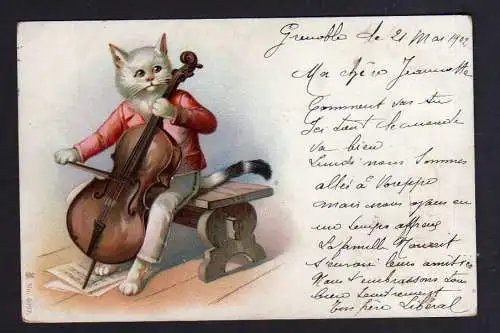 Grenoble le 21 Mai 1902
Ma chère Jeannette
Comment vas tu
Ici tout le monde
va bien
Lundi nous sommes
allés à Voreppe
mais nous avons eu
un temps affreux
La famille
t'envoie leurs amitiés
Nous t'embrassons tous
bien tendrement
Ton père Libéral